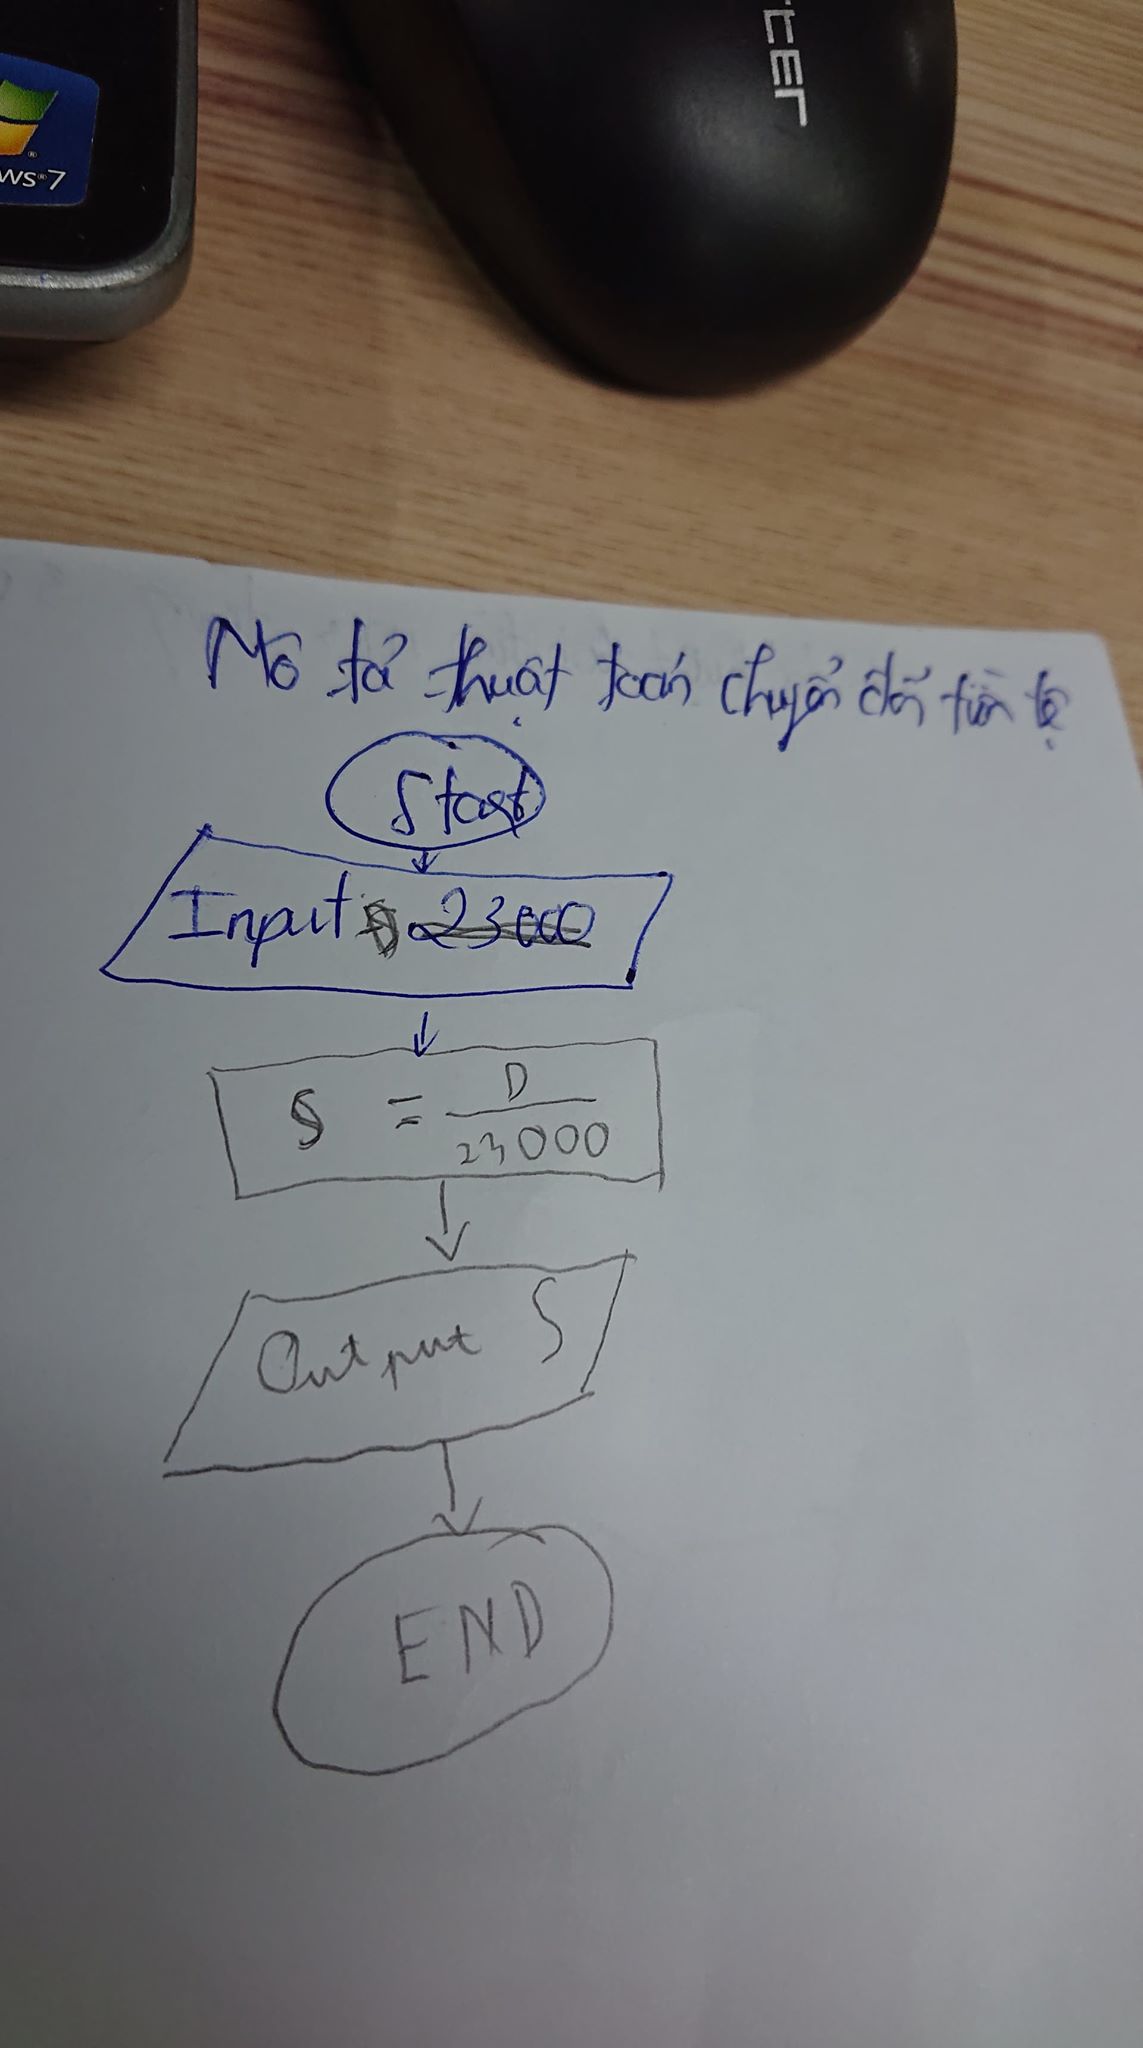 ws®7
Mô tả thuật toán chuyển đổi tiền tệ
Start
Input D 23000
S = D
23000
Output S
END